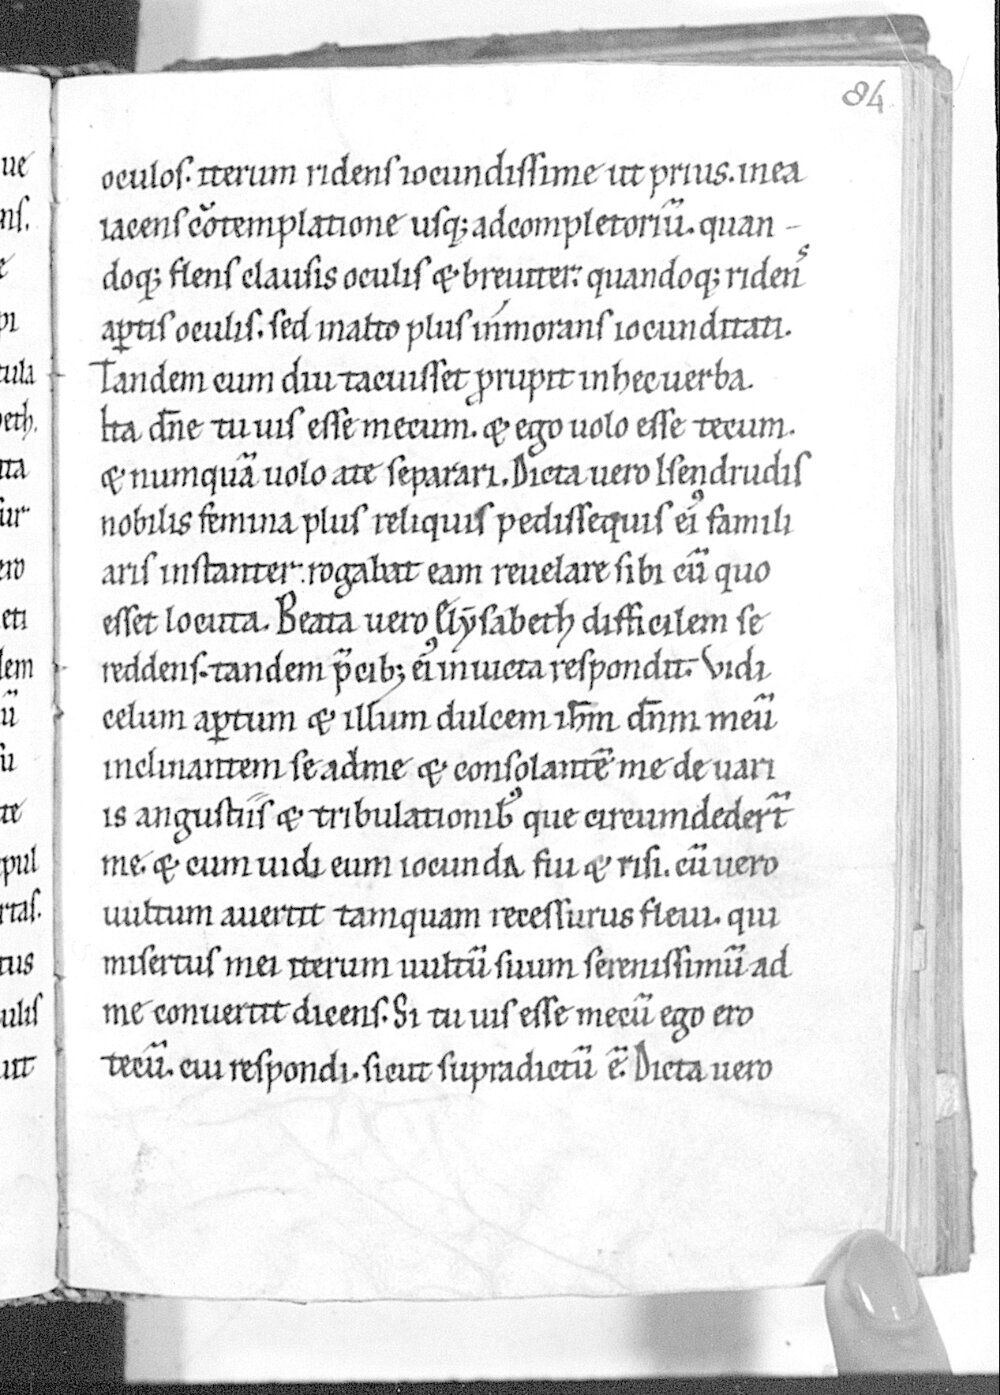 84
oculos. iterum ridens iocundissime ut prius. in ea
iacens cōtemplatione usq; ad completoriū. quan-
doq; flens clausis oculis & breuiter. quandoq; ridens
aꝑtis oculis. sed in alto plus inmorans iocunditati.
Tandem cum diu tacuisset ꝓrupit in hec uerba.
Ita dn̄e tu uis esse mecum. & ego uolo esse tecum.
& numquā uolo a te separari. Dicta uero Isendrudis
nobilis femina plus reliquis pedissequis ei⁹ famili
aris instanter rogabat eam reuelare sibi cū quo
esset locuta. Beata uero Elẏsabeth difficilem se
reddens. tandem p̄cib; ei⁹ inuicta respondit. Vidi
celum aꝑtum & illum dulcem ih̄m dn̄m meū
inclinantem se ad me & consolantē me de uari
is angustiis & tribulationib⁹ que circumdeder̄t
me. & cum uidi eum iocunda fui & risi. cū uero
uultum auertit tamquam recessurus fleui. qui
misertus mei iterum uultū suum serenissimū ad
me conuertit dicens. Si tu uis esse mecū ego ero
tecū. cui respondi. sicut supradictū ē. Dicta uero